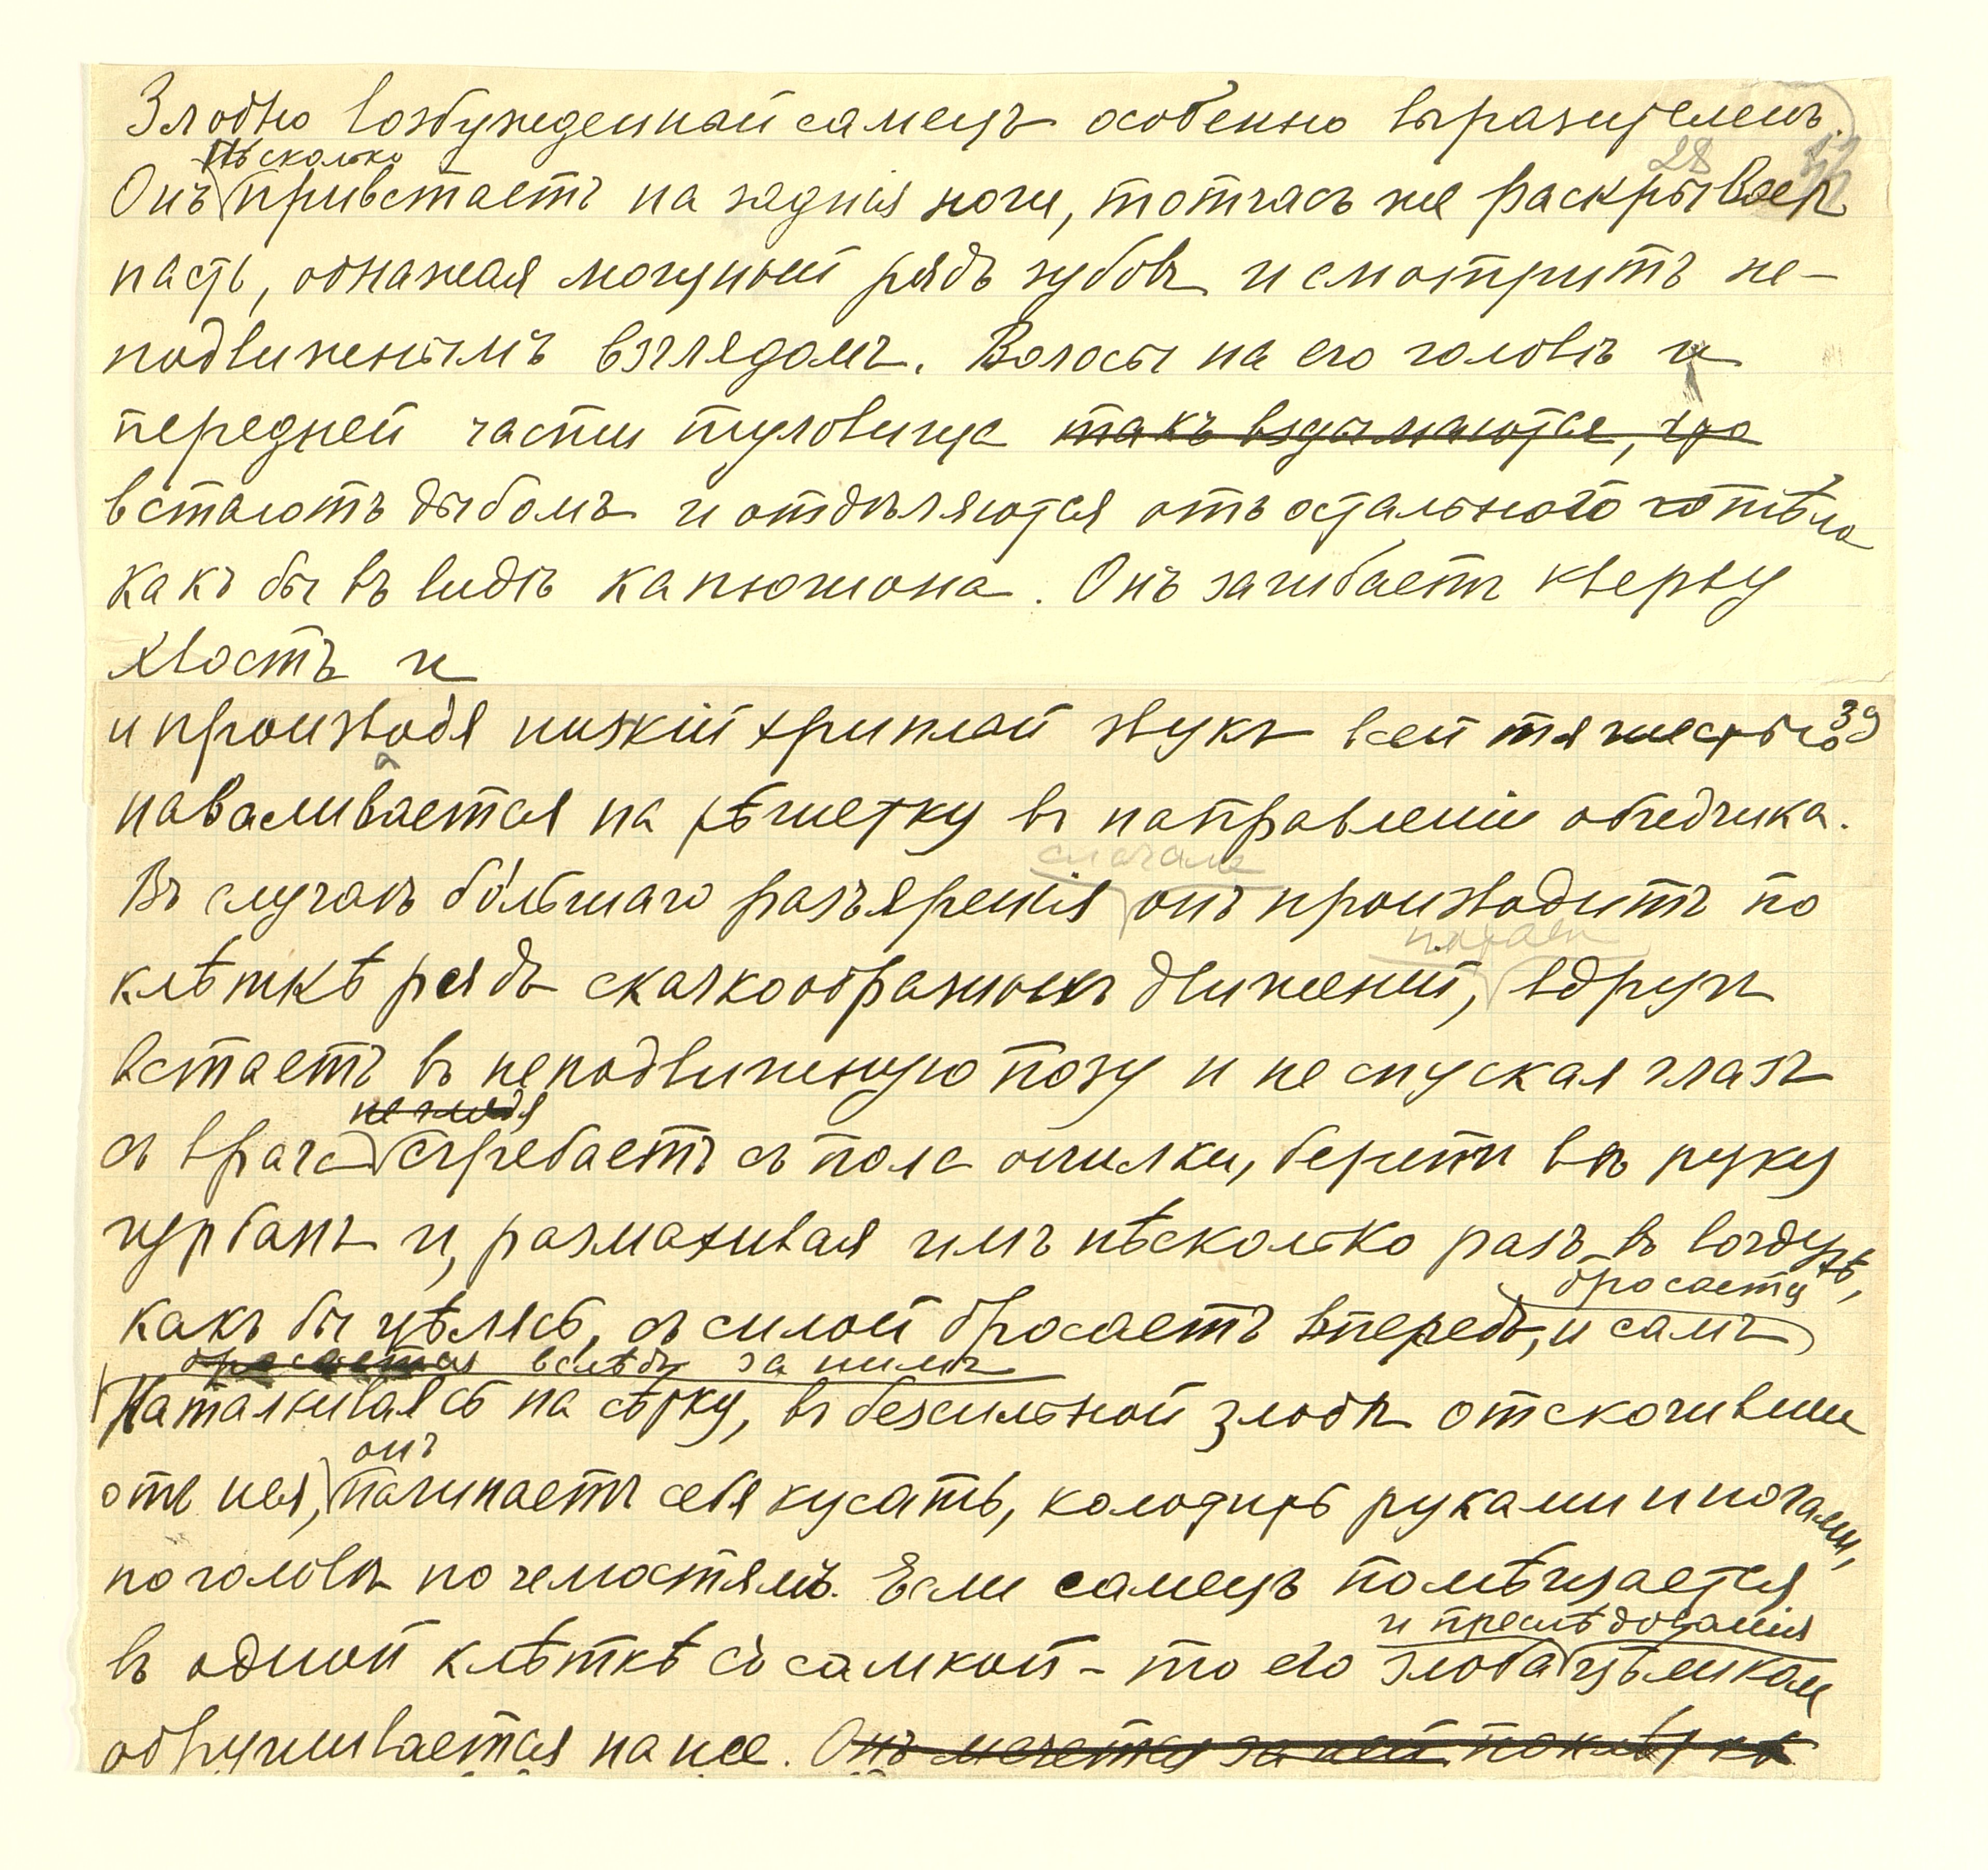 Злобно возбужденный самецъ особенно выразителенъ.
нѣсколько
28
Онъ привстаетъ на заднія ноги, тотчасъ же раскрываетъ
пасть, обнажая могучий рядъ зубовъ и смотритъ не-
подвижнымъ взглядомъ. Волосы на его головѣ и
передней части туловища такъ вздымаются, что
встаютъ дыбомъ и отдѣляются отъ остального тѣла
какъ бы въ видѣ капюшона. Онъ загибаетъ кверху
хвостъ и
и производя низкій хриплый звукъ всей тяжестью 39
наваливается на рѣшетку въ направленіи обидчика.
сначала
Въ случаѣ бо́льшаго разъяренія онъ производитъ по
потомъ
клѣткѣ рядъ скачкообразныхъ движеній, вдругъ
встаетъ въ неподвижную позу и не спуская глазъ
не глядя
съ врага сгребаетъ съ пола опилки, беретъ въ руку
чурбанъ и, размахивая имъ нѣсколько разъ въ воздухѣ,
бросаетъ
какъ бы цѣлясь, съ силой бросаетъ впередъ, и самъ
бросается вслѣдъ за нимъ
Наталкиваясь на сѣтку, въ безсильной злобѣ отскочивши
онъ
отъ нея, начинаетъ себя кусать, колотить руками и ногами,
по головѣ по челюстямъ. Если самецъ помѣщается
и преслѣдованія
въ одной клѣткѣ съ самкой - то его злоба цѣликом
обрушивается на нее. Онъ мечется за ней по клѣткѣ